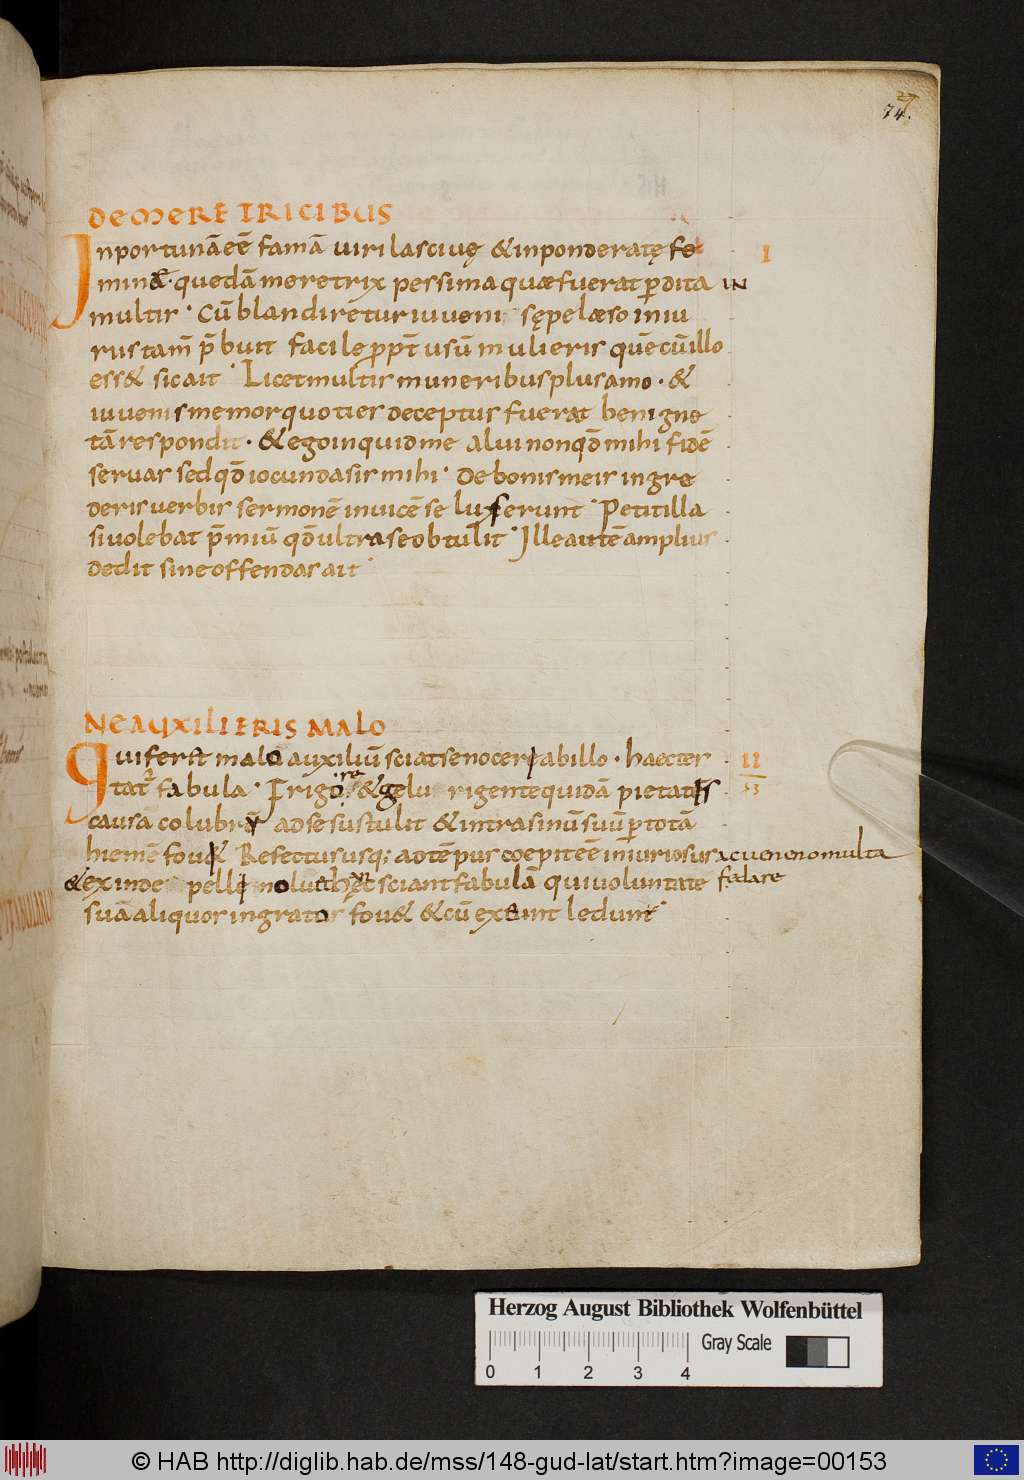 27
74.
DE MERETRICIBUS
Inportunā eē famā uiri lasciuę & inponderatę fe
I
minę̄· quedā meretrix pessima quae fuerat p̄dita in
multis · Cū blandiretur iuueni sępe laeso iniu
riis tam̄ p̄buit facile pp̄t usū mulieris quē cū illo
ess& sic ait · Licet multis muneribus plus amo · &
iuuenis memor quotier deceptus fuerat benigne
tā respondit · & ego inquid me alui non qđ mihi fidē
seruas sed qđ iocunda sis mihi · De bonis meis ingre
deris uerbis sermonē inuicē se luxerunt · Petit illa
si uolebat p̄miū qđ ultra se obtulit · Ille autē amplius
dedit sine offendas ait ·
NE AUXILIERIS MALO
Qui fert malo auxiliū sciat se noceri ab illo · haec ter
II
tat² fabula · Frigore & gelu rigente quidā pietatis
53
causa colubrū ad se sustulit & intra sinū suū p totā
hiemē fou& Refectus usq; ad tēpus coepit eē iniuriosus ac ueneno multa
& exinde pelli noluit hęc sciant fabulā qui uoluntate
fędare
suā aliquos ingratos fou& & cū exeunt ledunt ·
Herzog August Bibliothek Wolfenbüttel
Gray Scale
0 1 2 3 4
© HAB http://diglib.hab.de/mss/148-gud-lat/start.htm?image=00153